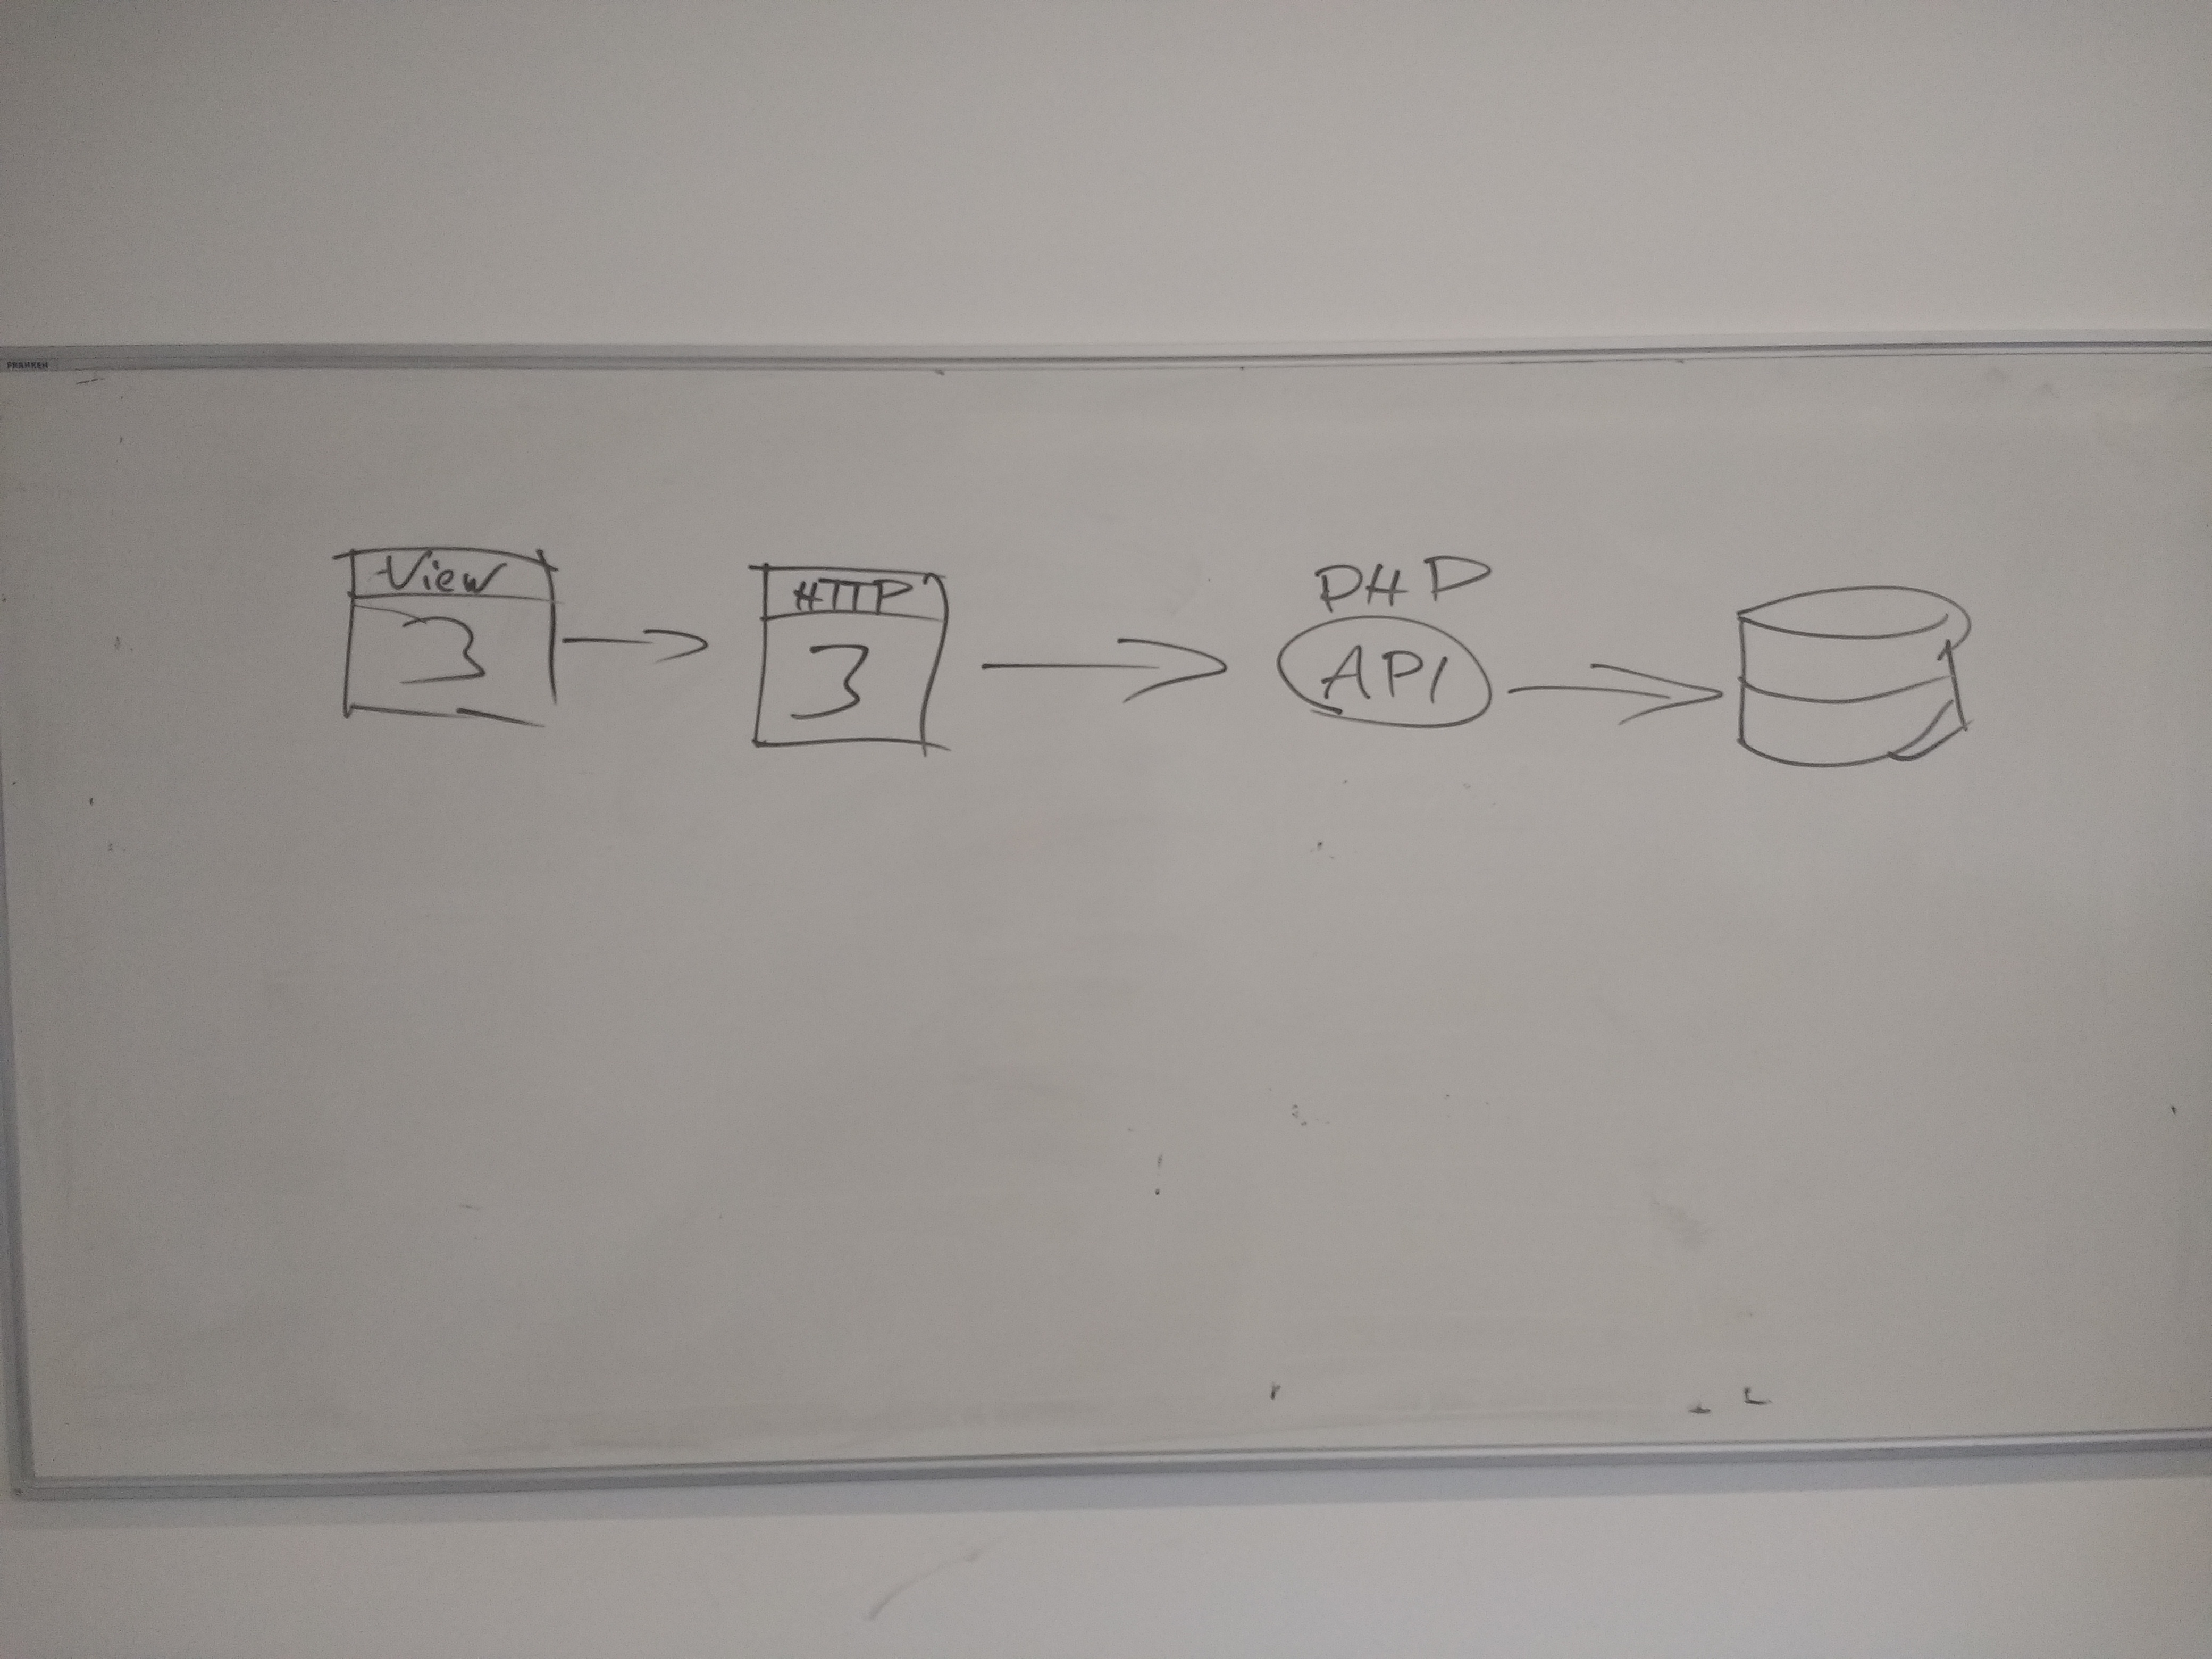 FRANKEN
View
3
HTTP
3
PHP
API